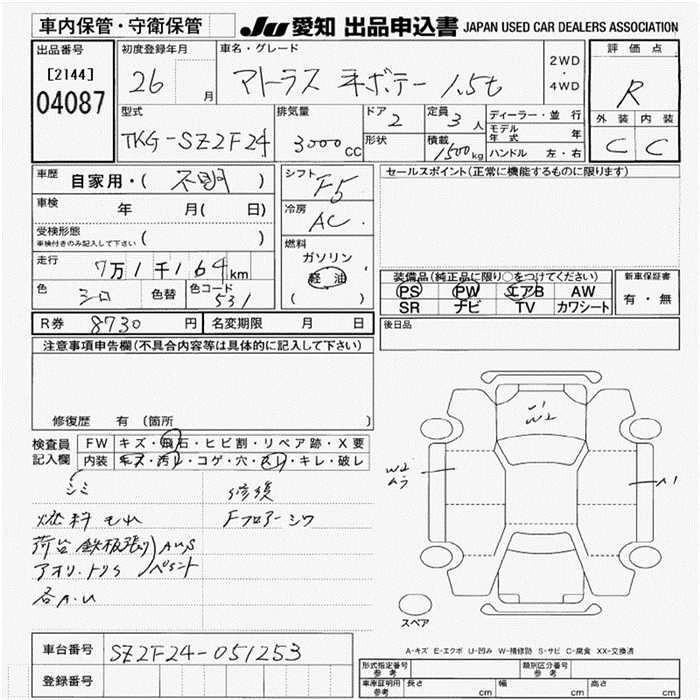 車内保管・守衛保管
JU 愛知 出品申込書 JAPAN USED CAR DEALERS ASSOCIATION
出品番号
[2144]
04087
初度登録年月
26 月
車名・グレード
アトラス 平ボデー 1.5t
2WD
・
4WD
評価点
R
外装 内装
C C
型式
TKG-SZ2F24
排気量
3000cc
ドア
2
形状
定員
3人
積載
1500kg
ディーラー・並行
モデル年式 年
ハンドル 左・右
車歴
自家用・( 不明 )
車検
年 月( 日)
受検形態
車検付きのみ記入して下さい ( )
走行
7万1千164km
色
シロ
色替
色コード
531
シフト
F5
冷房
AC
燃料
ガソリン
軽油
( )
セールスポイント(正常に機能するものに限ります)
装備品(純正品に限り○をつけてください)
PS PW エアB AW
SR ナビ TV カワシート
新車保証書
有・無
R券 8730 円
名変期限 月 日
後日品
注意事項申告欄(不具合内容等は具体的に記入して下さい)
修復歴 有 (箇所 )
検査員記入欄
FW キズ・飛石・ヒビ割・リペア跡・X要
内装 キズ・汚レ・コゲ・穴・スレ・キレ・破レ
シミ
燃料もれ
荷台 鉄板張り
アオリ・トリS
各A.U
修復
Fフロアーシワ
W2
A1
スペア
A-キズ E-エクボ U-凹み W-補修跡 S-サビ C-腐食 XX-交換済
車台番号 SZ2F24-051253
登録番号
形式指定番号
参考
類別区分番号
参考
車庫証明用
参考
長さ cm
幅 cm
高さ cm